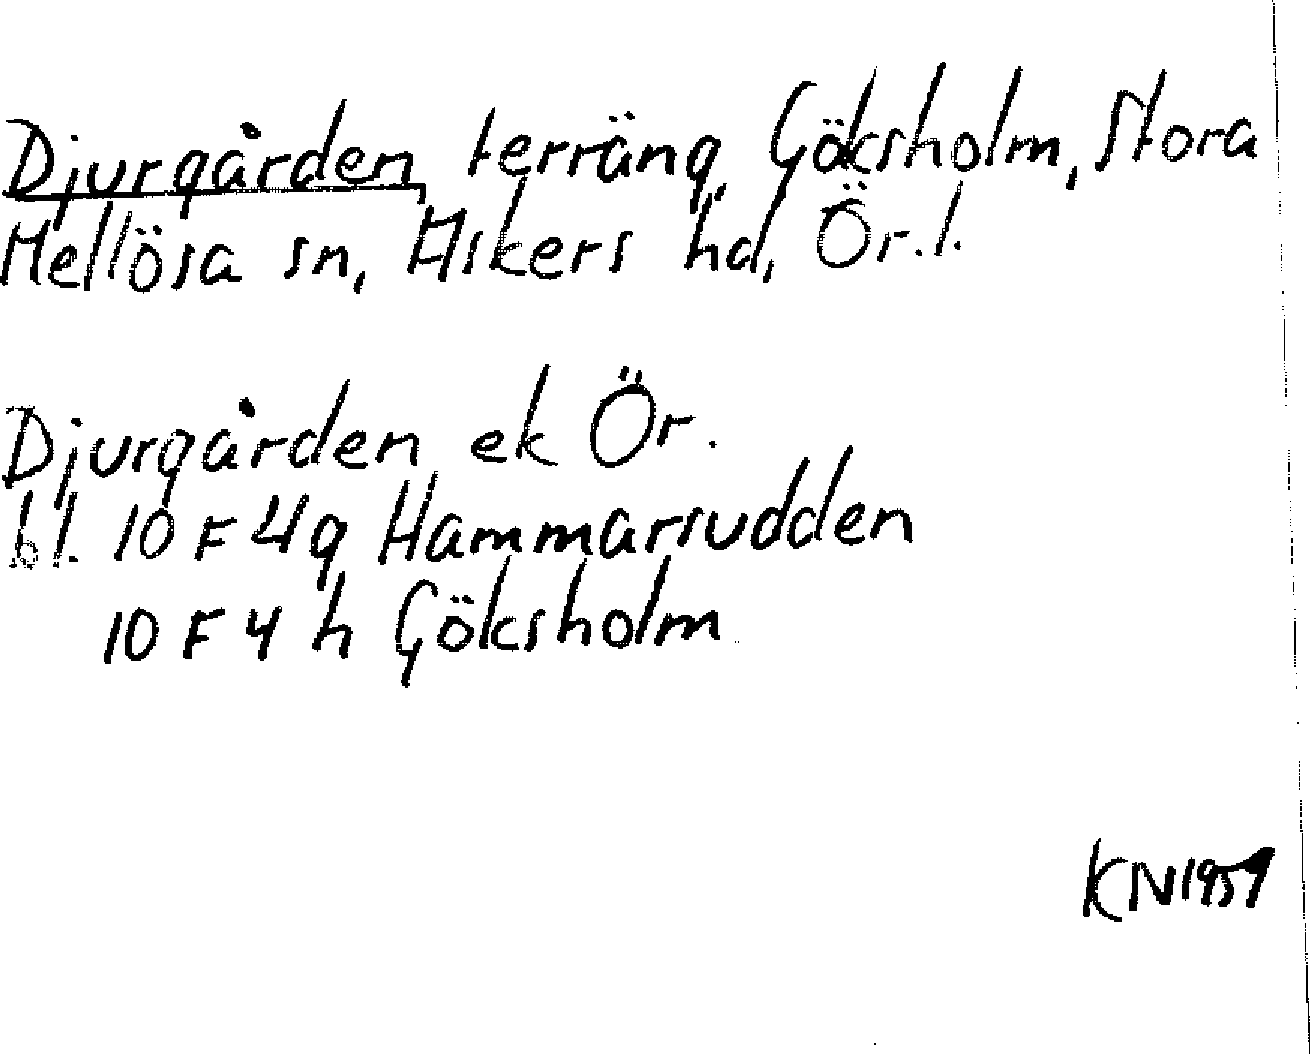 Djurgården, terräng, Göksholm, Stora
Mellösa sn, Askers hd, Ör. l.
Djurgården ek Ör.
bl. 10 F 4g Hammarsudden
10 F 4 h Göksholm
KN 1959